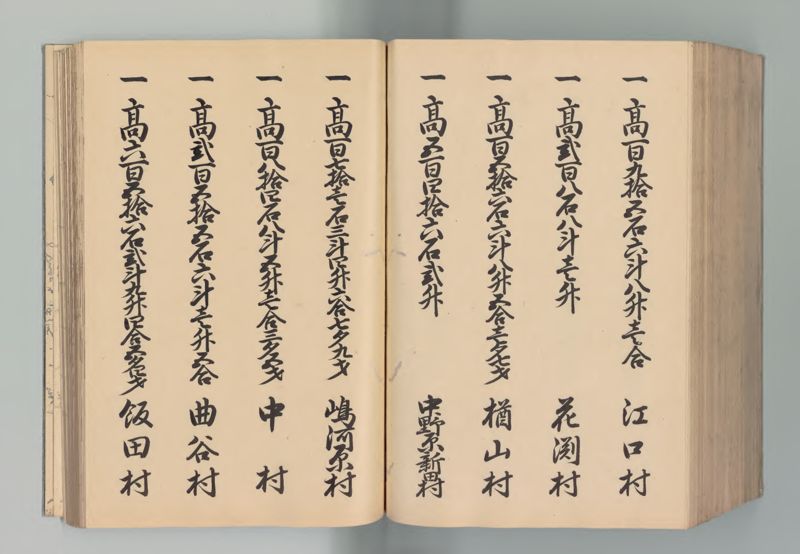 一 高百九拾五石六斗八升壱合 江口村
一 高弐百八石八斗壱升 花渕村
一 高百五拾六石六斗八升五合壱夕七才 楢山村
一 高五百四拾六石弐升 中野原新田村
一 高百七拾壱石三斗四升六合七夕九才 嶋河原村
一 高百八拾四石八斗五升壱合三夕 中村
一 高弐百五拾五石六斗壱升五合 曲谷村
一 高六百五拾六石弐斗九升四合五夕 飯田村